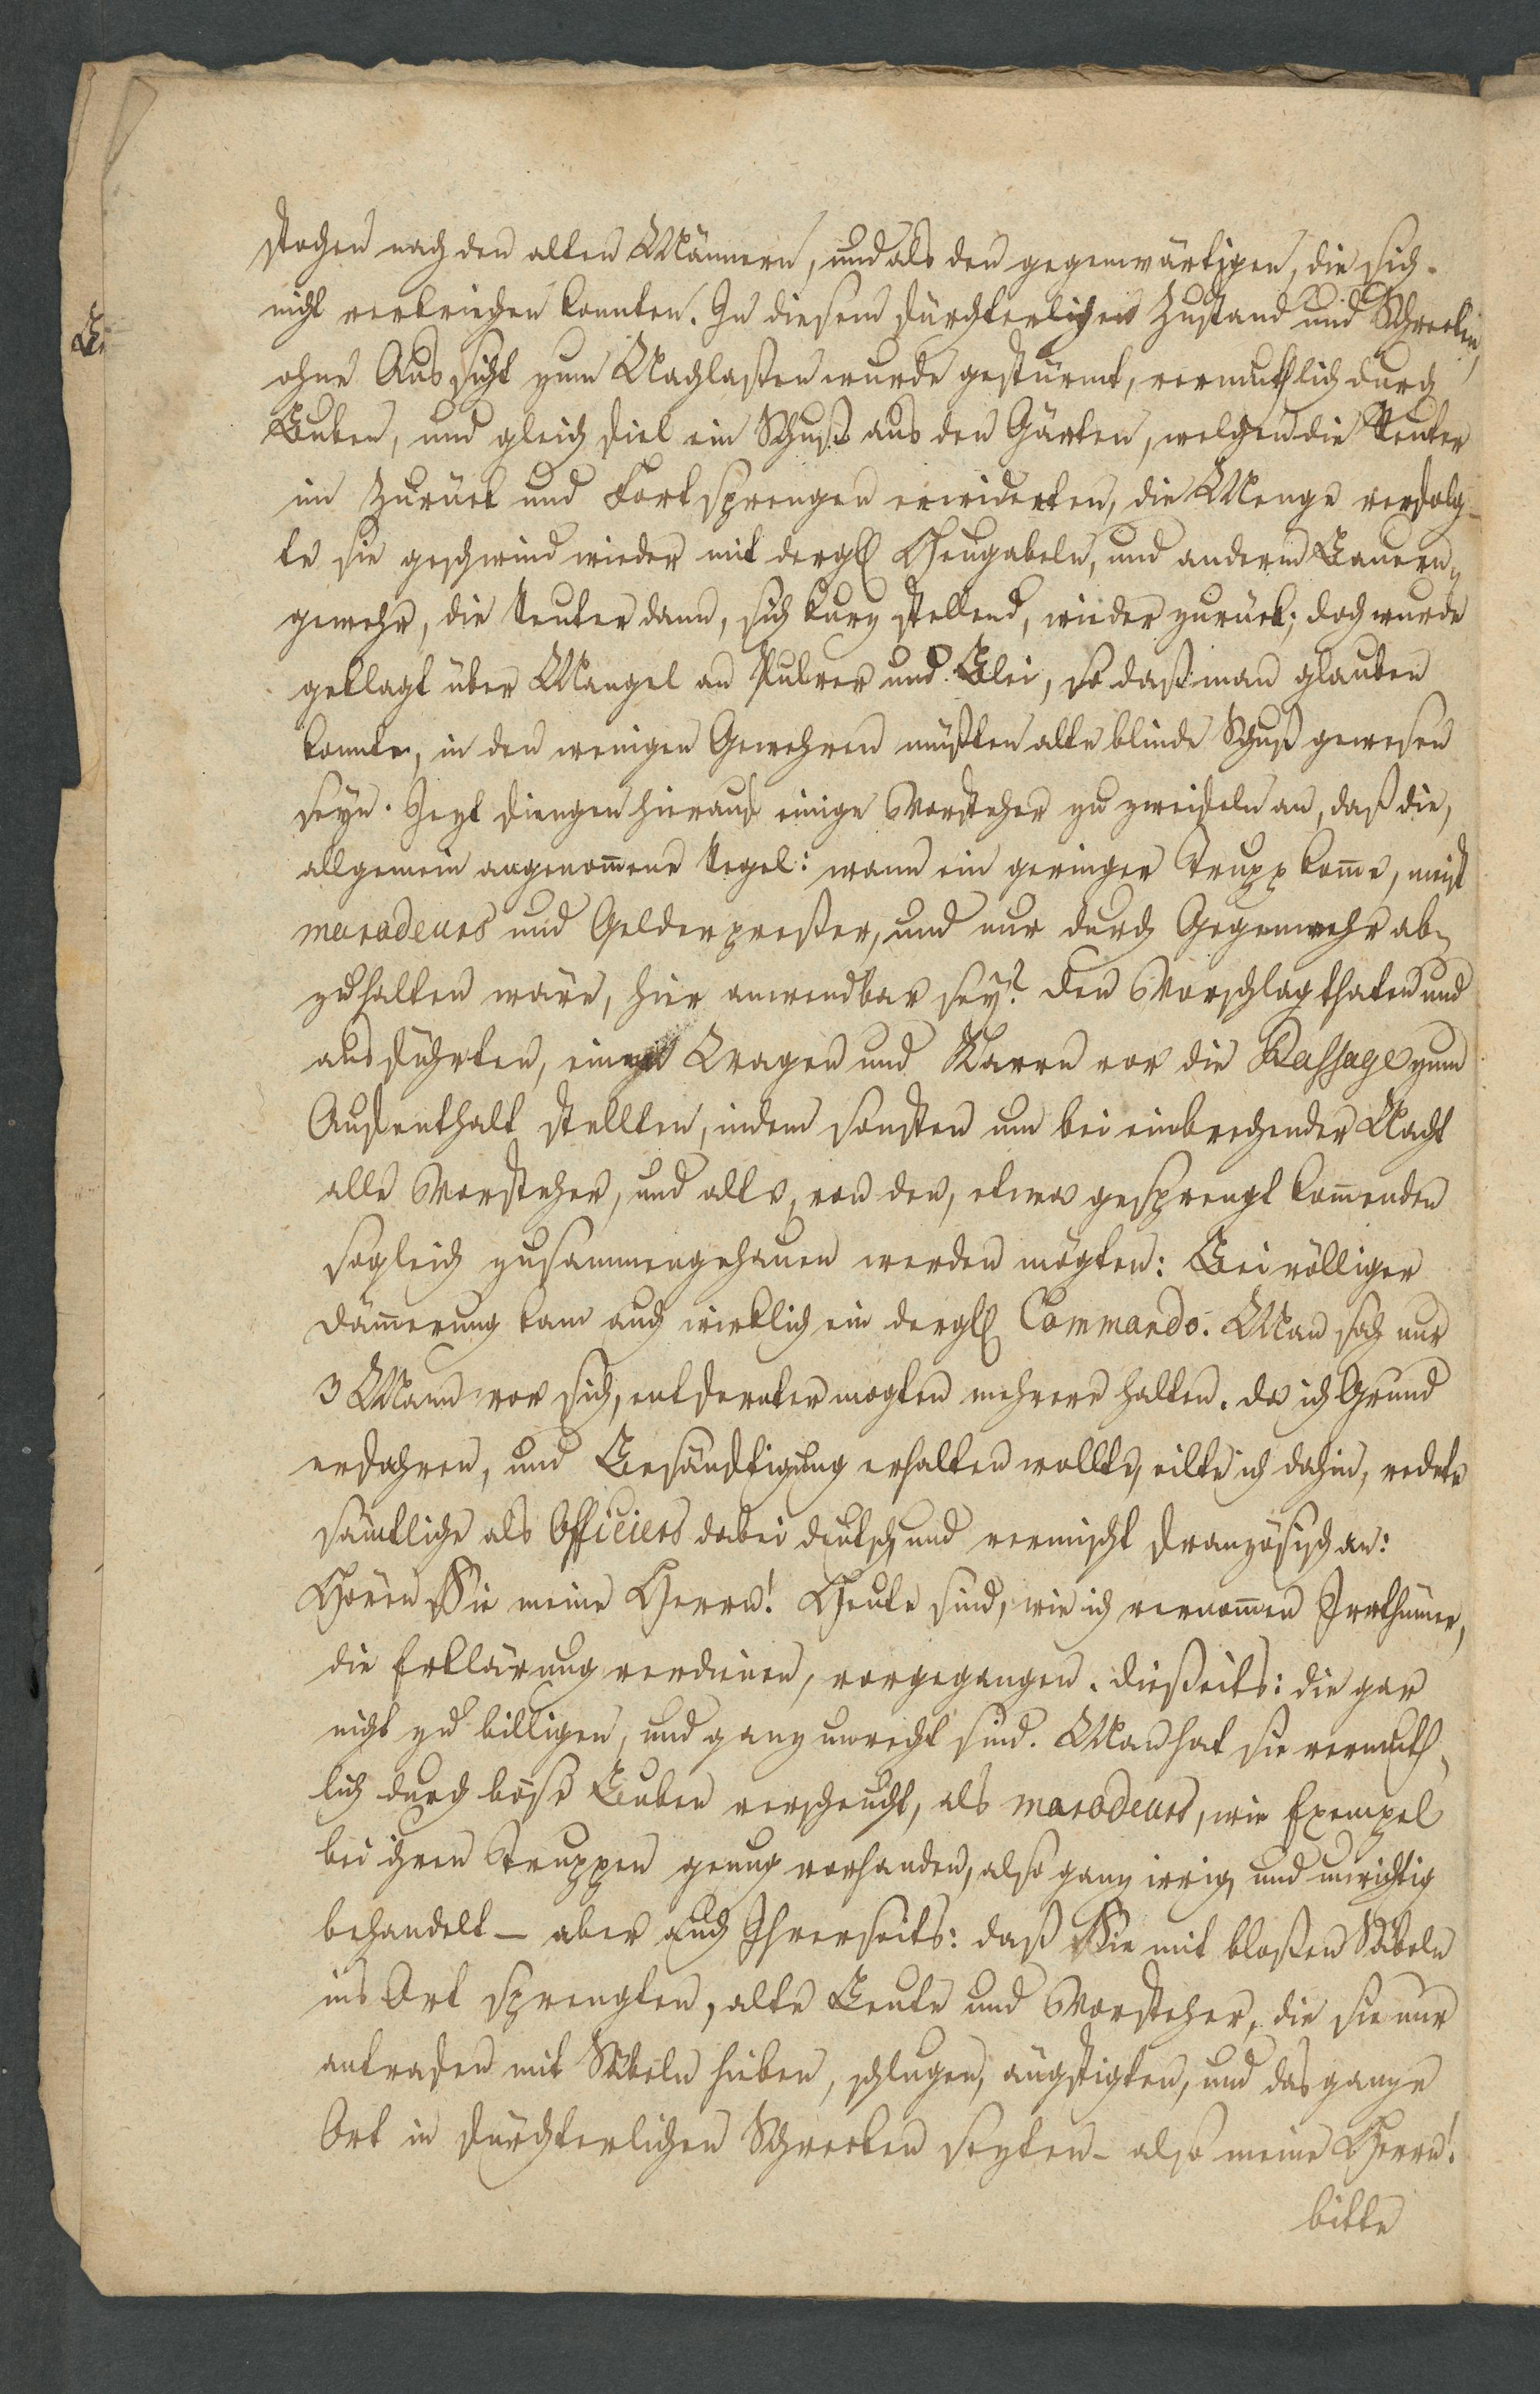 stachen nach den alten Männern, und als den gegenwärtigen, die sich
nicht verkriechen konnten. In diesem fürchterlichen Zustand und Schrecken,
ohne Aussicht zum Nachlassen wurde gestürmt, vermuthlich durch
Buben, und gleich fiel ein Schuß aus den Gärten, welchen die Reuter
im Zurück und Fortsprengen erwiderten, die Menge verfolg-
te sie geschwind wieder mit dergl Heugabeln, und anderm Bauern-
gewehr, die Reuter dann, sich kurz stellend, wieder zurück; doch wurde
geklagt über Mangel an Pulver und Blei, so daß man glauben
konnte, in den wenigen Gewehren müßten alte blinde Schuß gewesen
seyn. Jezt fiengen hierauf einige Vorsteher zu zweifeln an, daß die,
allgemein angenom̄ene Regel: wann ein geringer Trupp kom̄e, meist
maradeurs und Gelderpresser, und nur durch Gegenwehr ab-
zuhalten wäre, hier anwendbar sey? den Vorschlag thaten und
ausführten, einen Wagen und Karrn vor die Passage zum
Aufenthalt stellten, indem sonsten nun bei einbrechender Nacht
alle Vorsteher, und alles, von den, etwa gesprengt kom̄enden
sogleich zusammengehauen werden mögten: Bei völliger
Däm̄erung kam auch wirklich ein dergl Commando. Man sah nur
3 Mann vor sich, entfernter mogten mehrere halten. da ich Grund
erfahren, und Besänftigung erhalten wollte, eilte ich dahin, redete
sämtliche als Officiers dabei deutsch und vermischt französisch an:
Hören Sie meine Herrn! Heute sind, wie ich vernom̄en Irrthümer,
die Erklärung verdienen, vorgegangen. disseits: die gar
nicht zu billigen, und ganz unrecht sind. Man hat sie vermuth-
lich durch böse Buben verscheucht, als maradeurs, wie Exempel
bei ihren Truppen genug vorhanden, also ganz irrig, und unrichtig
behandelt – aber auch Ihrerseits: daß Sie mit bloßen Säbeln
ins Ort sprengten, alte Leute und Vorsteher, die sie nur
antrafen mit Säbeln hieben, schlugen, ängstigten, und das ganze
Ort in fürchterlichen Schrecken sezten – also meine Herrn!
bitte